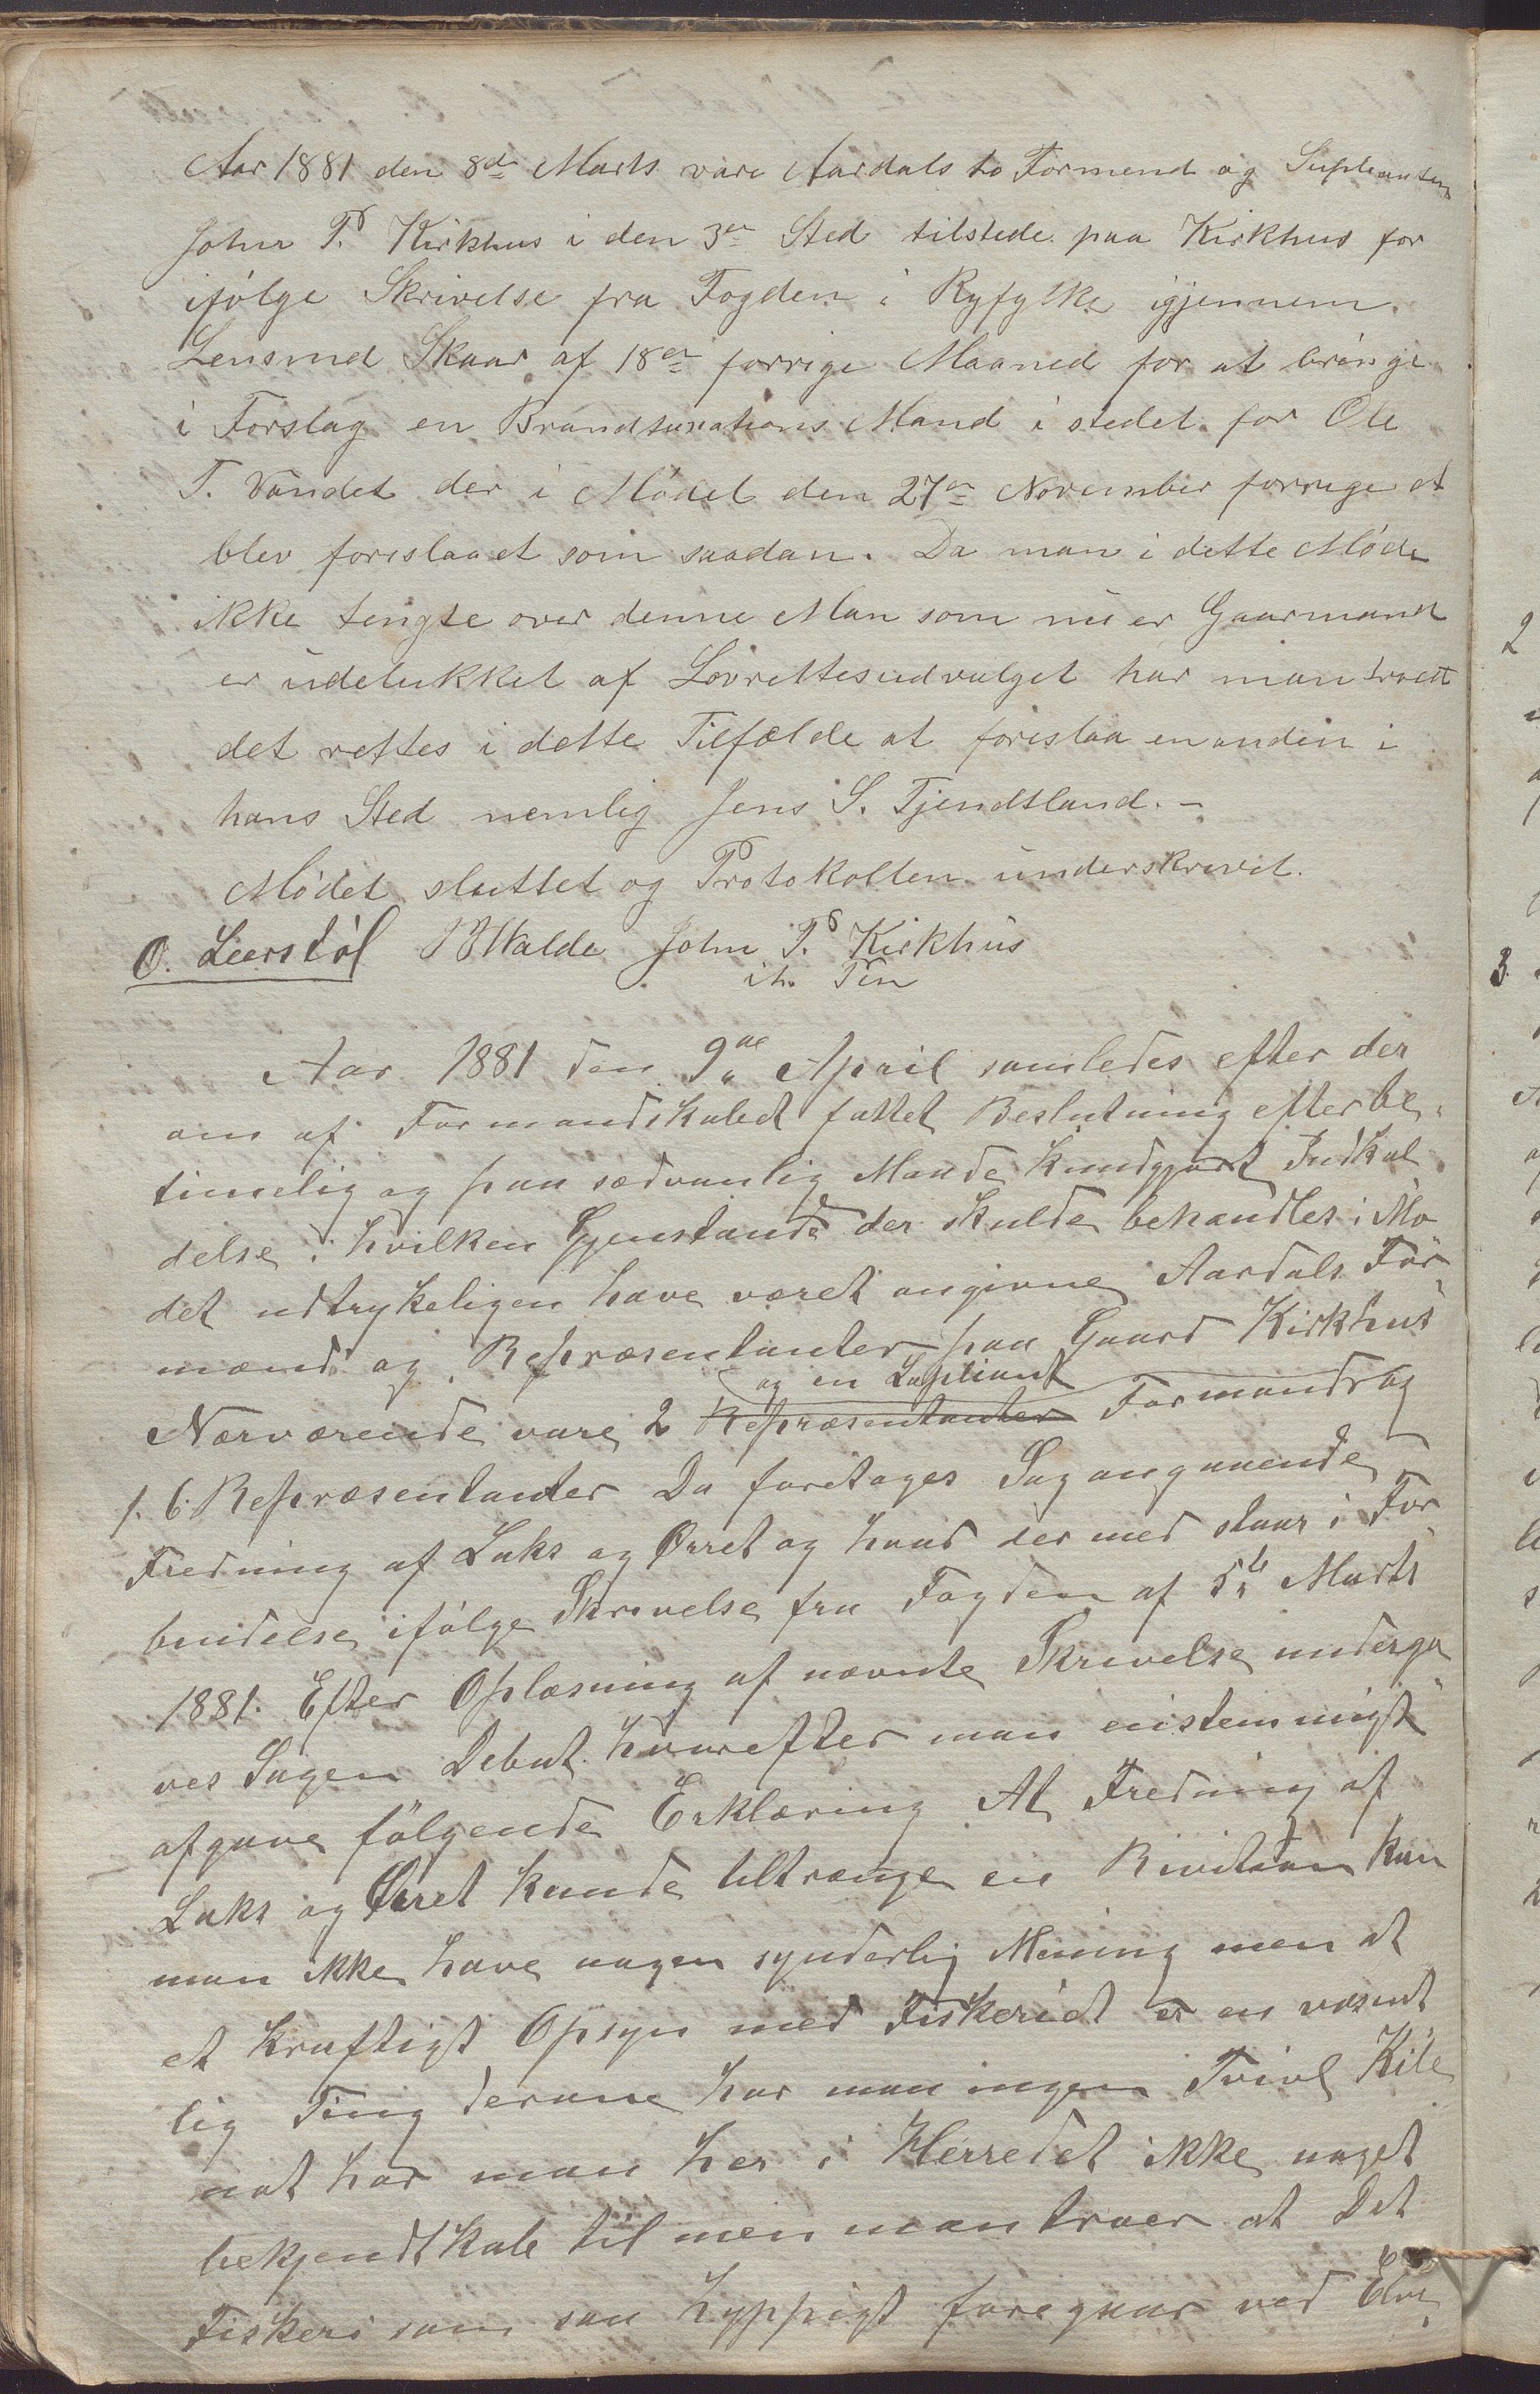 Aar 1881 den 8de Marts vare Aardals to Formend og Supleanten
John T.d Kirkhus i den 3die Sted tilstede paa Kirkhus for
ifølge Skrivelse fra Fogden i Ryfylke igjennem
Lensmd Skaar af 18en forrige Maaned for at bringe
i Forslag en Brandtaxations Mand i stedet for Ole
T. Vandet der i Mødet den 27en November forrige at
blev foreslaaet som saadan. Da man i dette Møde
ikke tengte over denne Man som nu er Gaarmand
er udelukket af Lovrettesudvalget har man troett
det rettes i dette Tilfælde at foreslaa en anden i
hans Sted nemlig Jens S. Tjendtland. -
Mødet sluttet og Protokollen underskrevet.
O. Leerstøl Walde John T.d Kirkhus
ih. Pen
Aar 1881 den 9de April samledes efter der
om af Formandskabet fattet Beslutning efter be
timelig og paa sædvanlig Maade kundgjort Indkal
delse i hvilken Gjenstande der skulde behandles i Mø
det udtrykeligen have været angivne Aardals For
mænd og Repræsentanter paa Gaard Kirkhus
og en Supliant
Nærværende vare 2 Repræsentanter Formænd og
1. 6 Repræsentanter Da foretages Sag angaaende
Fredning af Laks og Ørret og hvad der med staar i For
bindelse ifølge Skrivelse fra Fogden af 5te Marts
1881. Efter Oplæsning af nævnte Skrivelse underga
ves Sagen Debat hvorefter man enstemmigt
afgave følgende Erklæring At Fredning af
Laks og Ørret kunde tiltrænge en Rivition kan
man ikke have nogen synderlig Mening men at
et kraftigt Opsyn med Fiskeriet er en væsent
lig Ting derom har man ingen Tvivl Kile
not har man her i Herredet ikke noget
bekjendtskab til men man troer at Det
Fiskeri som saa hyppigt foregaar ved Elve